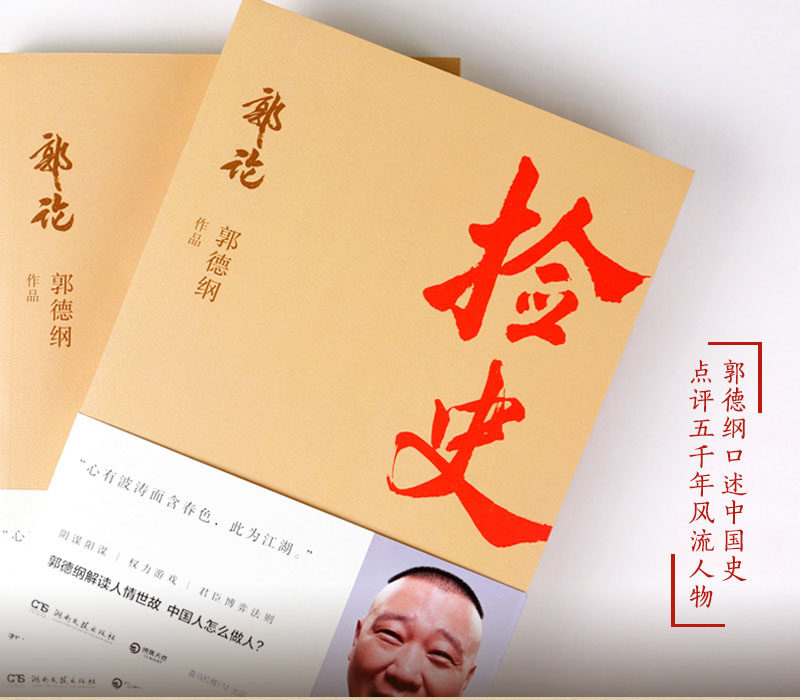 郭论
郭德纲
作品
郭论
郭德纲
作品
捡史
“心有波涛面含春色，此为江湖。”
阴谋阳谋 | 权力游戏 | 君臣博弈法则
郭德纲解读人情世故 中国人怎么做人？
CS 湖南文艺出版社
博集天卷
喜马拉雅FM 出品
“心
CS 湖南文艺出版社
郭德纲口述中国史
点评五千年风流人物